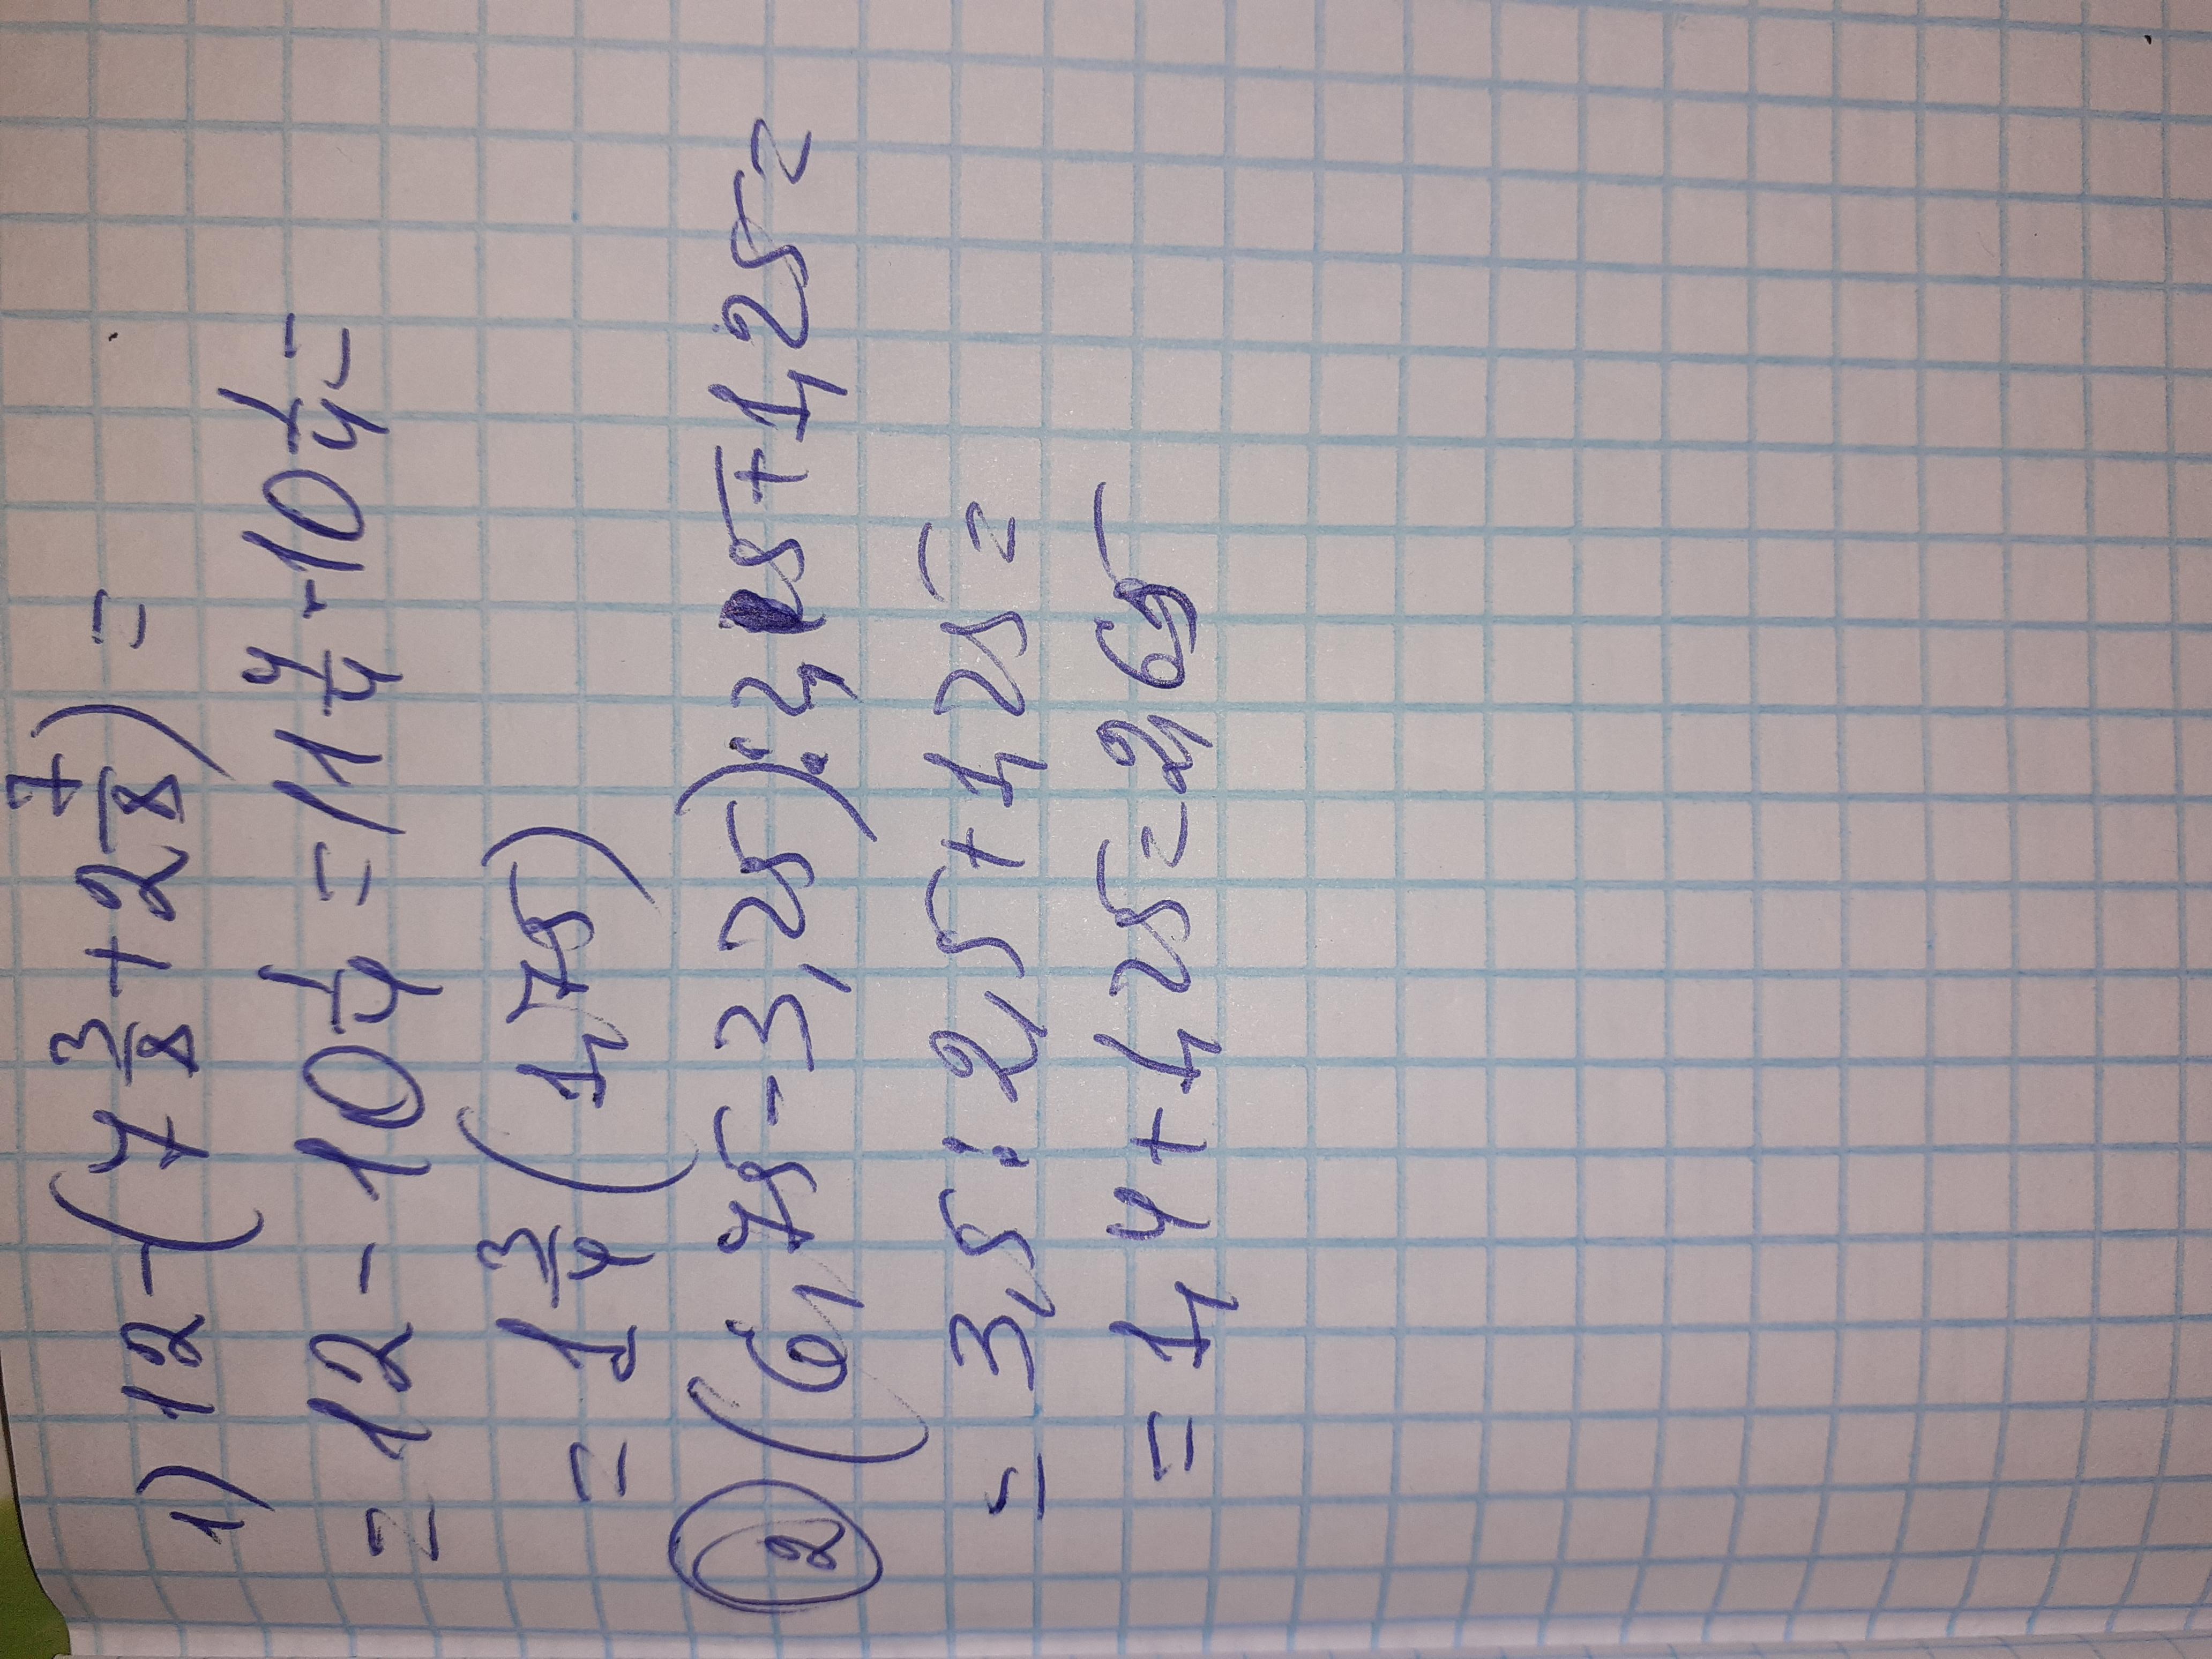 1) 12 - (7 3/8 + 2 7/8) =
= 12 - 10 1/4 = 11 4/4 - 10 1/4 =
= 1 3/4 (1,75)
2 (6,75 - 3,25) : 2,5 + 1,25 =
= 3,5 : 2,5 + 1,25 =
= 1,4 + 1,25 = 2,65